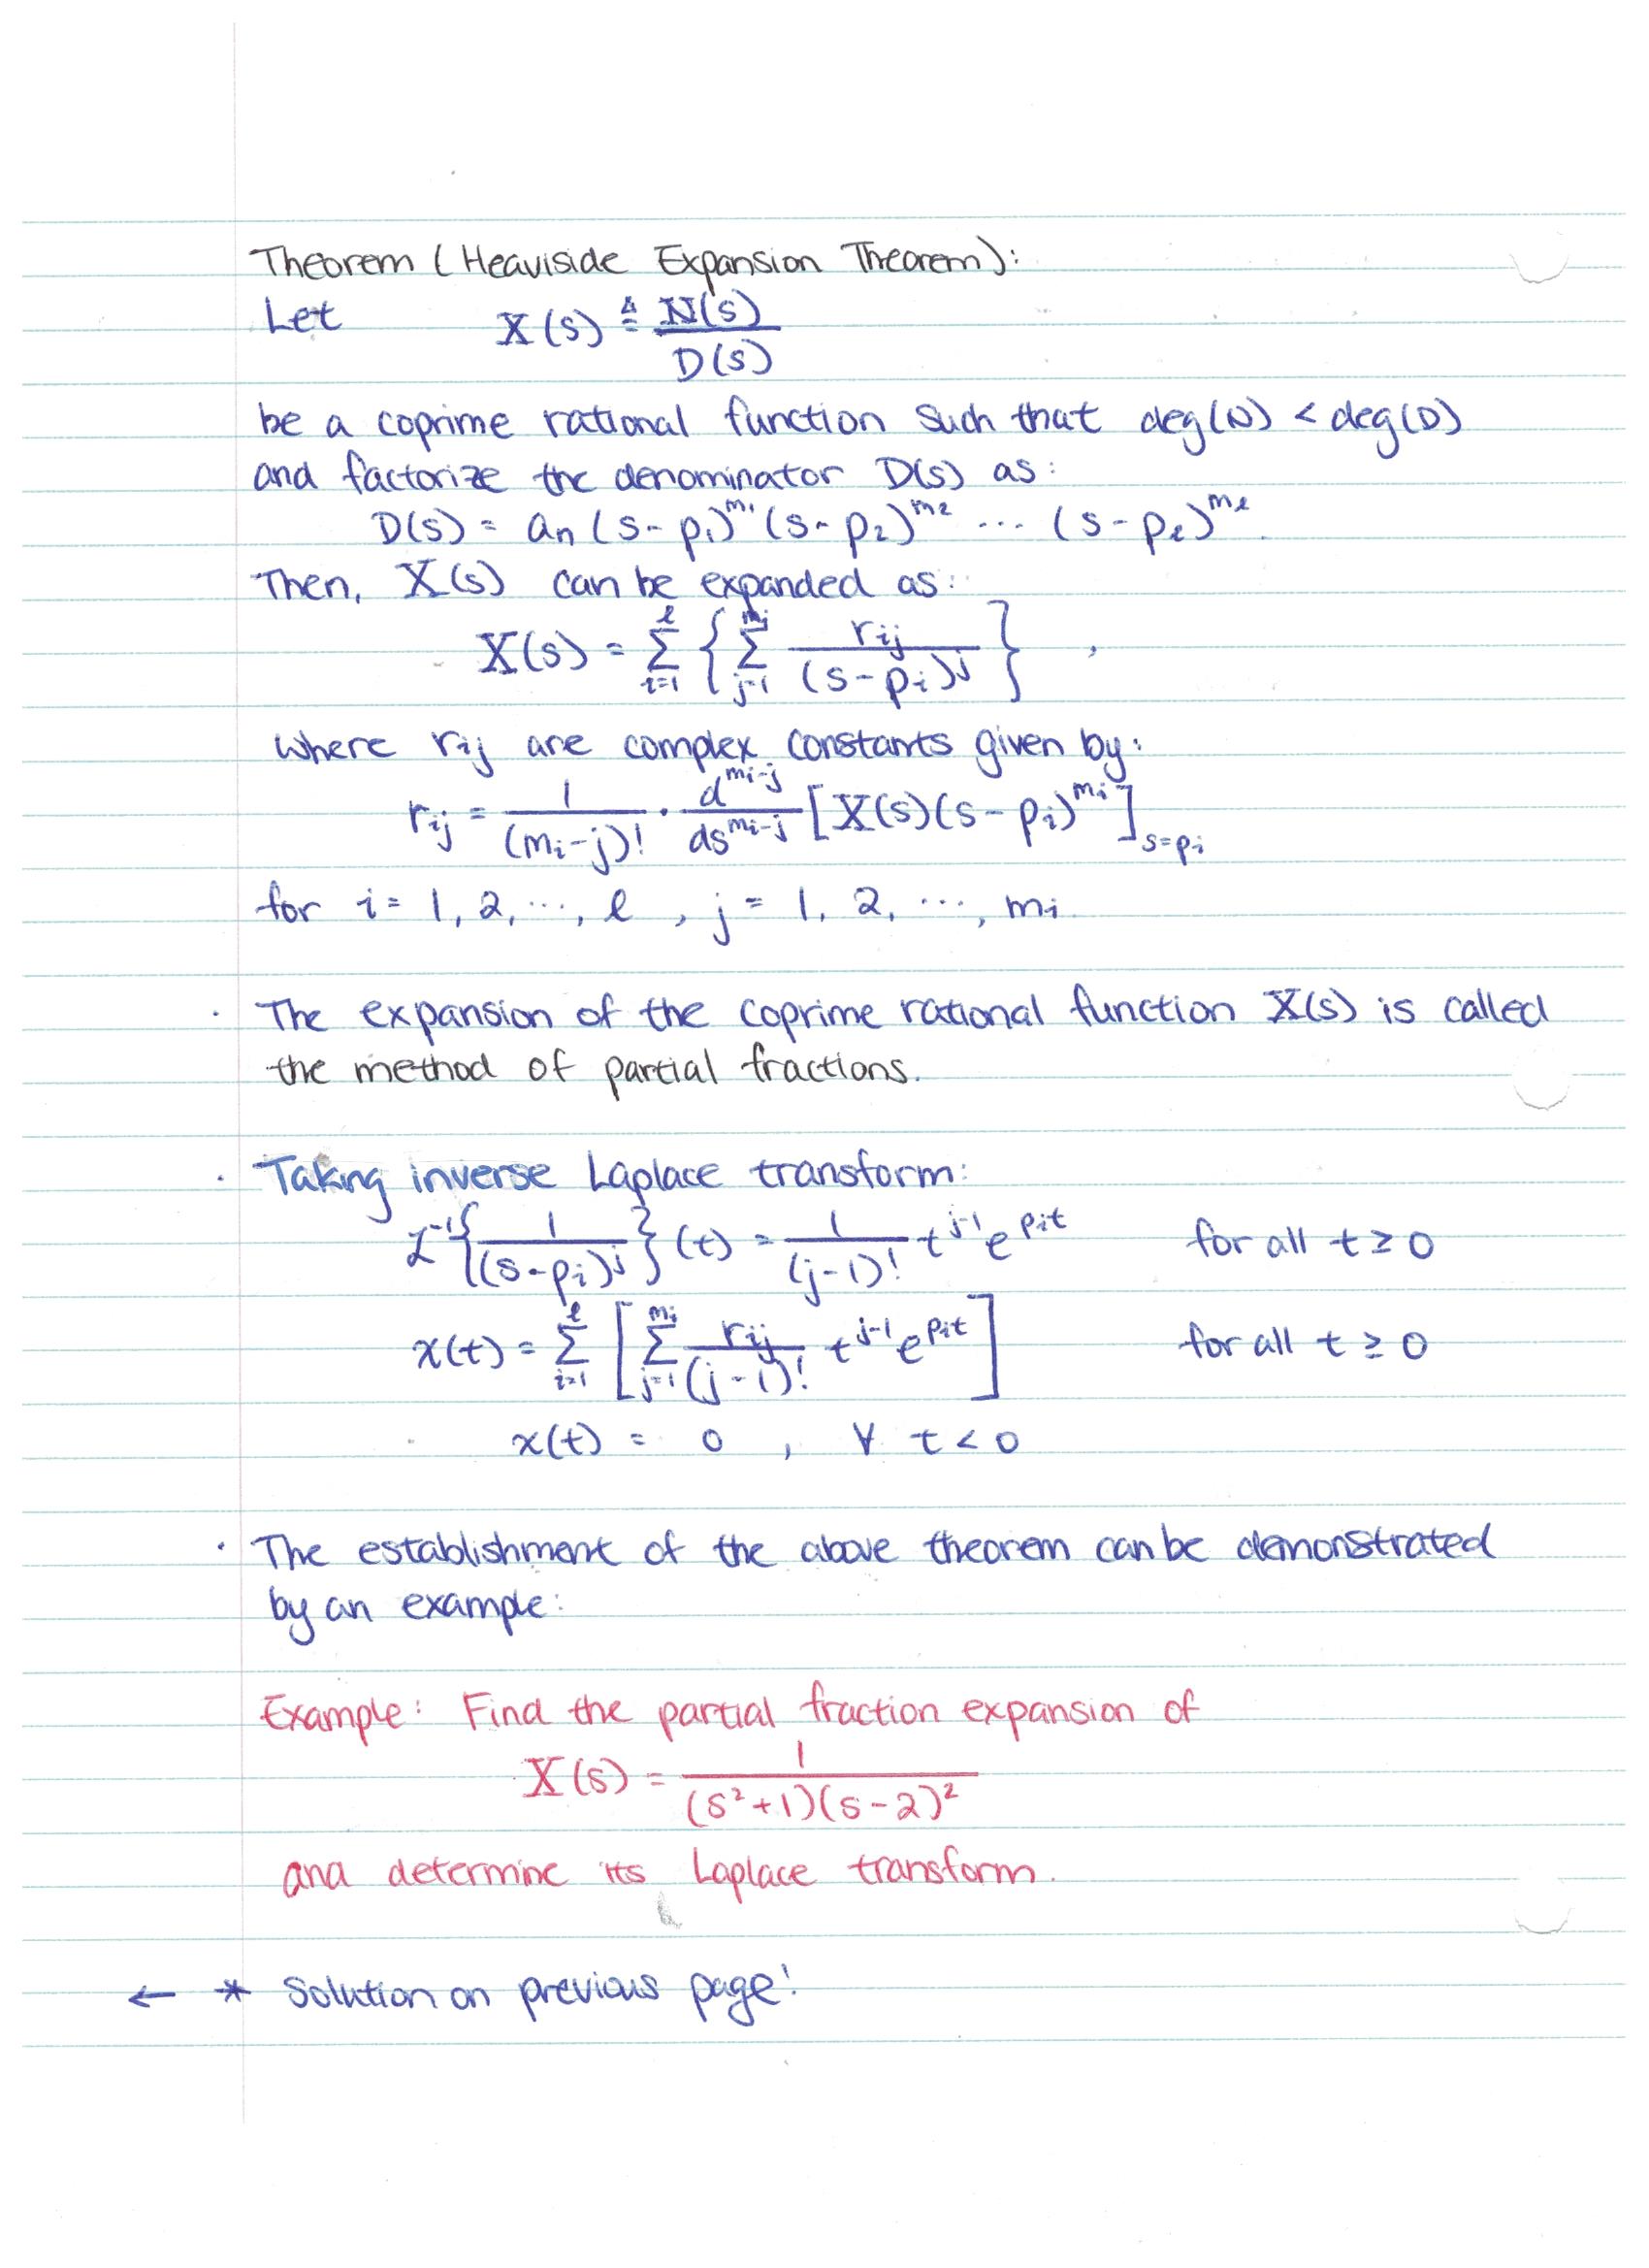 Theorem (Heaviside Expansion Theorem):
Let X(s) ≜ N(s)/D(s)
be a coprime rational function such that deg(N) < deg(D)
and factorize the denominator D(s) as:
D(s) = aₙ (s-p₁)^m₁ (s-p₂)^m₂ ... (s-pℓ)^mℓ.
Then, X(s) can be expanded as:
X(s) = Σ_{i=1}^{ℓ} { Σ_{j=1}^{mj} rij/(s-pi)^j } ,
where rij are complex constants given by:
rij = 1/(mi-j)! · d^{mi-j}/ds^{mi-j} [X(s)(s-pi)^mi]_{s=pi}
for i = 1, 2, ..., ℓ , j = 1, 2, ..., mi.
· The expansion of the coprime rational function X(s) is called
the method of partial fractions.
· Taking inverse Laplace transform:
ℒ^{-1}{1/(s-pi)^j}(t) = 1/(j-1)! t^{j-1} e^{pit} for all t ≥ 0
x(t) = Σ_{i=1}^{ℓ} [ Σ_{j=1}^{mi} rij/(j-1)! t^{j-1} e^{pit} ] for all t ≥ 0
x(t) = 0 , ∀ t < 0
· The establishment of the above theorem can be demonstrated
by an example:
Example: Find the partial fraction expansion of
X(s) = 1/((s²+1)(s-2)²)
and determine its Laplace transform.
← * Solution on previous page!